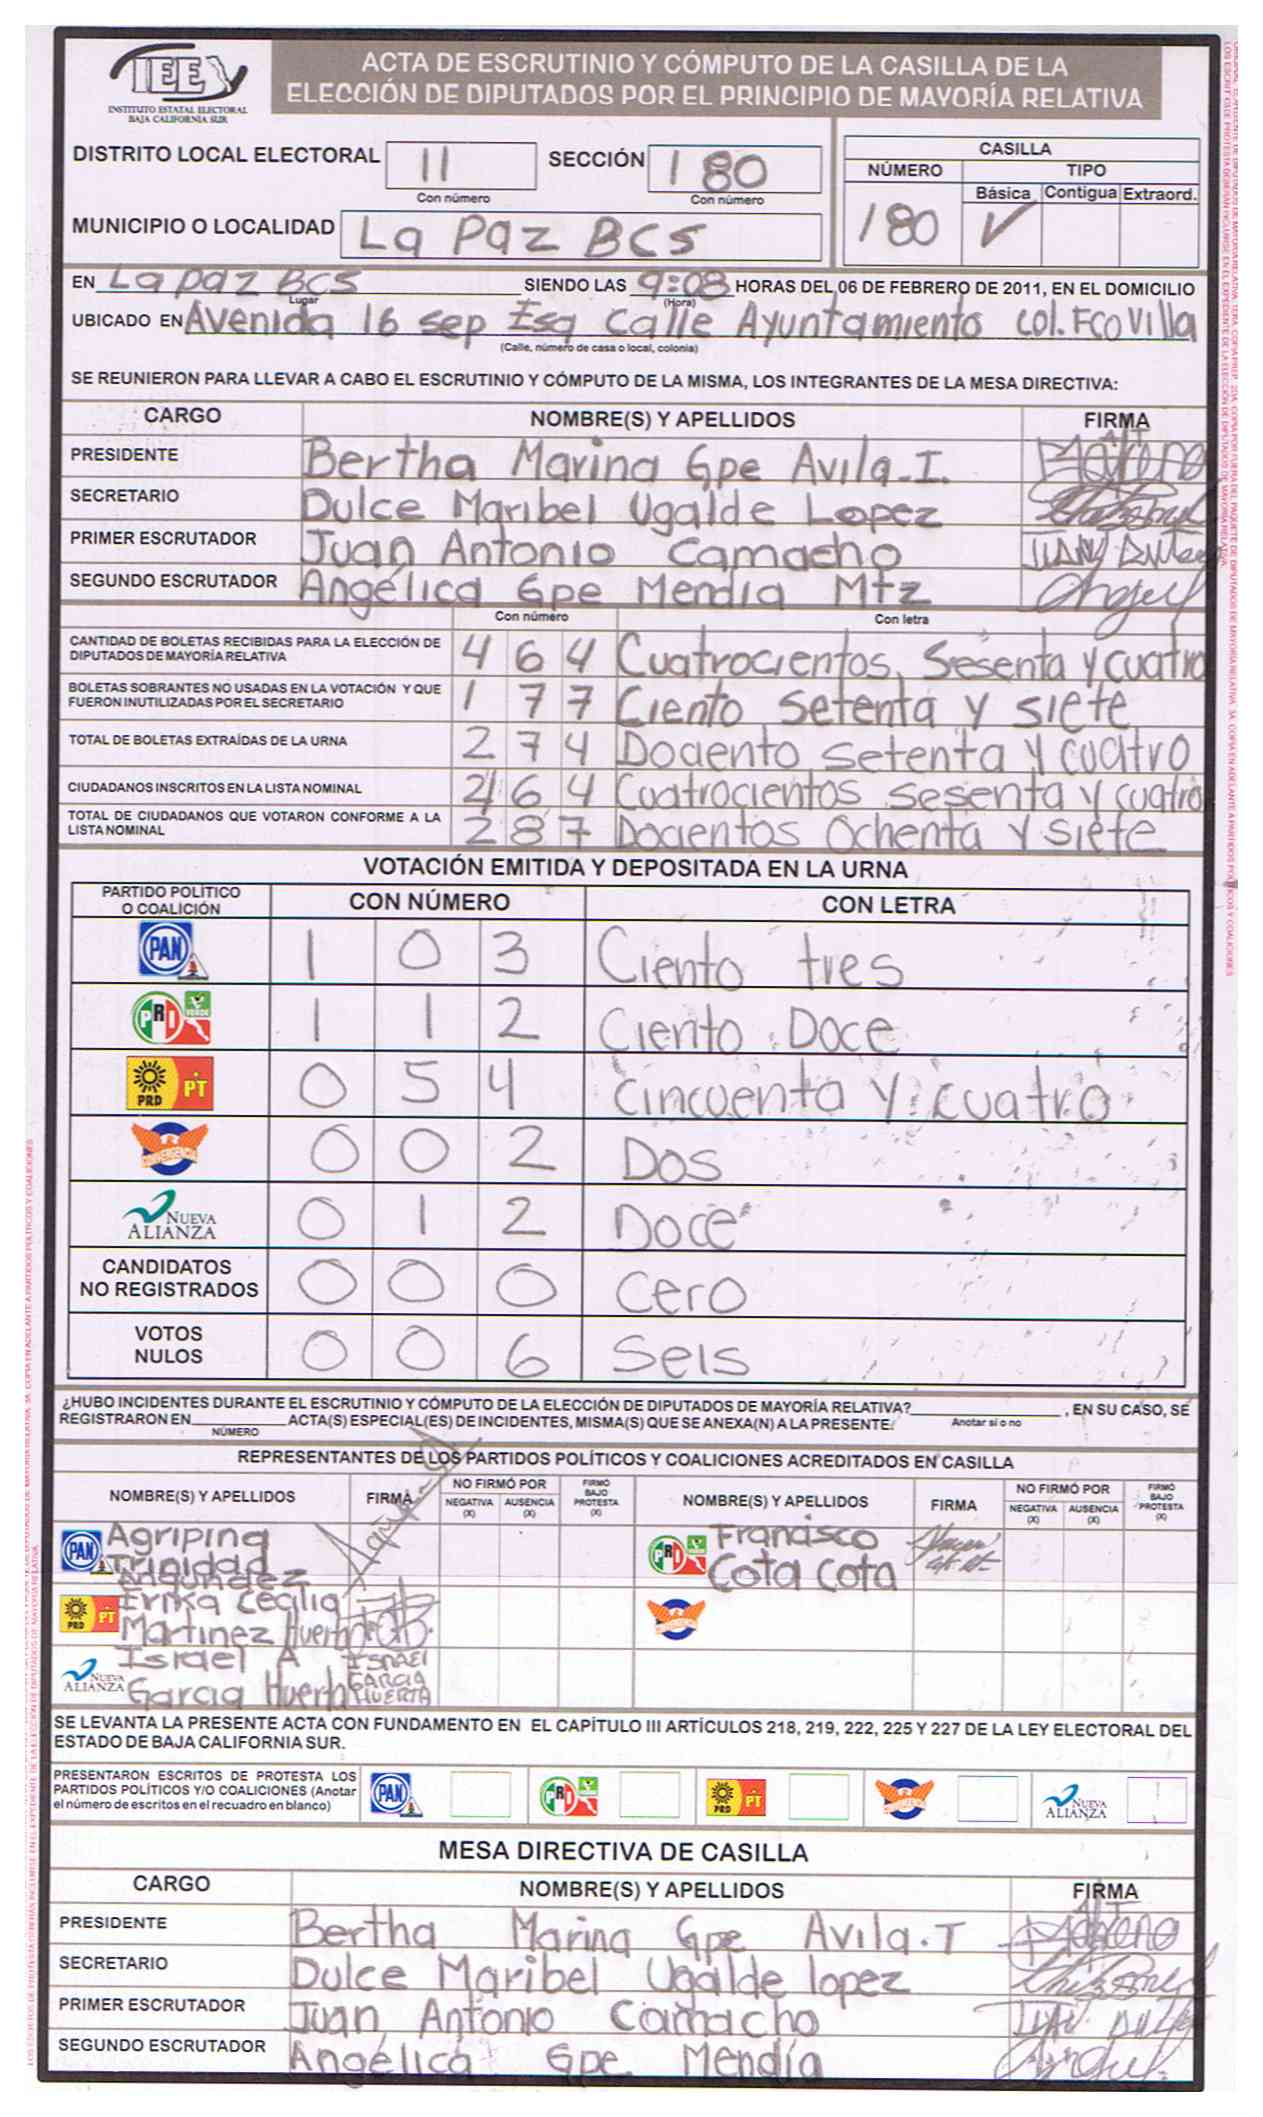 IEE
INSTITUTO ESTATAL ELECTORAL
BAJA CALIFORNIA SUR
ACTA DE ESCRUTINIO Y CÓMPUTO DE LA CASILLA DE LA
ELECCIÓN DE DIPUTADOS POR EL PRINCIPIO DE MAYORÍA RELATIVA
DISTRITO LOCAL ELECTORAL 11 SECCIÓN 180
Con número Con número
MUNICIPIO O LOCALIDAD La Paz BCS
CASILLA
NÚMERO TIPO
Básica Contigua Extraord.
180 ✓
EN La paz BCS SIENDO LAS 9:08 HORAS DEL 06 DE FEBRERO DE 2011, EN EL DOMICILIO
Lugar (Hora)
UBICADO EN Avenida 16 sep Esq Calle Ayuntamiento col. FCO Villa
(Calle, número de casa o local, colonia)
SE REUNIERON PARA LLEVAR A CABO EL ESCRUTINIO Y CÓMPUTO DE LA MISMA, LOS INTEGRANTES DE LA MESA DIRECTIVA:
CARGO NOMBRE(S) Y APELLIDOS FIRMA
PRESIDENTE Bertha Marina Gpe Avila.I.
SECRETARIO Dulce Maribel Ugalde Lopez
PRIMER ESCRUTADOR Juan Antonio Camacho
SEGUNDO ESCRUTADOR Angélica Gpe Mendia Mtz
Con número Con letra
CANTIDAD DE BOLETAS RECIBIDAS PARA LA ELECCIÓN DE
DIPUTADOS DE MAYORÍA RELATIVA 4 6 4 Cuatrocientos Sesenta y cuatro
BOLETAS SOBRANTES NO USADAS EN LA VOTACIÓN Y QUE
FUERON INUTILIZADAS POR EL SECRETARIO 1 7 7 Ciento setenta y siete
TOTAL DE BOLETAS EXTRAÍDAS DE LA URNA 2 7 4 Dociento setenta y cuatro
CIUDADANOS INSCRITOS EN LA LISTA NOMINAL 4 6 4 Cuatrocientos sesenta y cuatro
TOTAL DE CIUDADANOS QUE VOTARON CONFORME A LA
LISTA NOMINAL 2 8 7 Docientos Ochenta y siete
VOTACIÓN EMITIDA Y DEPOSITADA EN LA URNA
PARTIDO POLÍTICO
O COALICIÓN CON NÚMERO CON LETRA
PAN 1 0 3 Ciento tres
PRI VERDE 1 1 2 Ciento Doce
PRD PT 0 5 4 Cincuenta y cuatro
CONVERGENCIA 0 0 2 Dos
NUEVA ALIANZA 0 1 2 Doce
CANDIDATOS
NO REGISTRADOS 0 0 0 Cero
VOTOS
NULOS 0 0 6 Seis
¿HUBO INCIDENTES DURANTE EL ESCRUTINIO Y CÓMPUTO DE LA ELECCIÓN DE DIPUTADOS DE MAYORÍA RELATIVA? , EN SU CASO, SE
REGISTRARON EN ACTA(S) ESPECIAL(ES) DE INCIDENTES, MISMA(S) QUE SE ANEXA(N) A LA PRESENTE. Anotar si o no
NÚMERO
REPRESENTANTES DE LOS PARTIDOS POLÍTICOS Y COALICIONES ACREDITADOS EN CASILLA
NOMBRE(S) Y APELLIDOS FIRMA NO FIRMÓ POR NEGATIVA (X) AUSENCIA (X) FIRMÓ BAJO PROTESTA (X) NOMBRE(S) Y APELLIDOS FIRMA NO FIRMÓ POR NEGATIVA (X) AUSENCIA (X) FIRMÓ BAJO PROTESTA (X)
PAN Agripina PRI Francisco
Trinidad Cota Cota
PRD PT Erika Cecilia
Martinez Huerta
NUEVA ALIANZA Israel A ISRAEL
Garcia Huerta GARCIA
HUERTA
SE LEVANTA LA PRESENTE ACTA CON FUNDAMENTO EN EL CAPÍTULO III ARTÍCULOS 218, 219, 222, 225 Y 227 DE LA LEY ELECTORAL DEL
ESTADO DE BAJA CALIFORNIA SUR.
PRESENTARON ESCRITOS DE PROTESTA LOS
PARTIDOS POLÍTICOS Y/O COALICIONES (Anotar
el número de escritos en el recuadro en blanco) PAN PRI PRD PT NUEVA ALIANZA
MESA DIRECTIVA DE CASILLA
CARGO NOMBRE(S) Y APELLIDOS FIRMA
PRESIDENTE Bertha Marina Gpe Avila.I
SECRETARIO Dulce Maribel Ugalde lopez
PRIMER ESCRUTADOR Juan Antonio Camacho
SEGUNDO ESCRUTADOR Angélica Gpe. Mendía